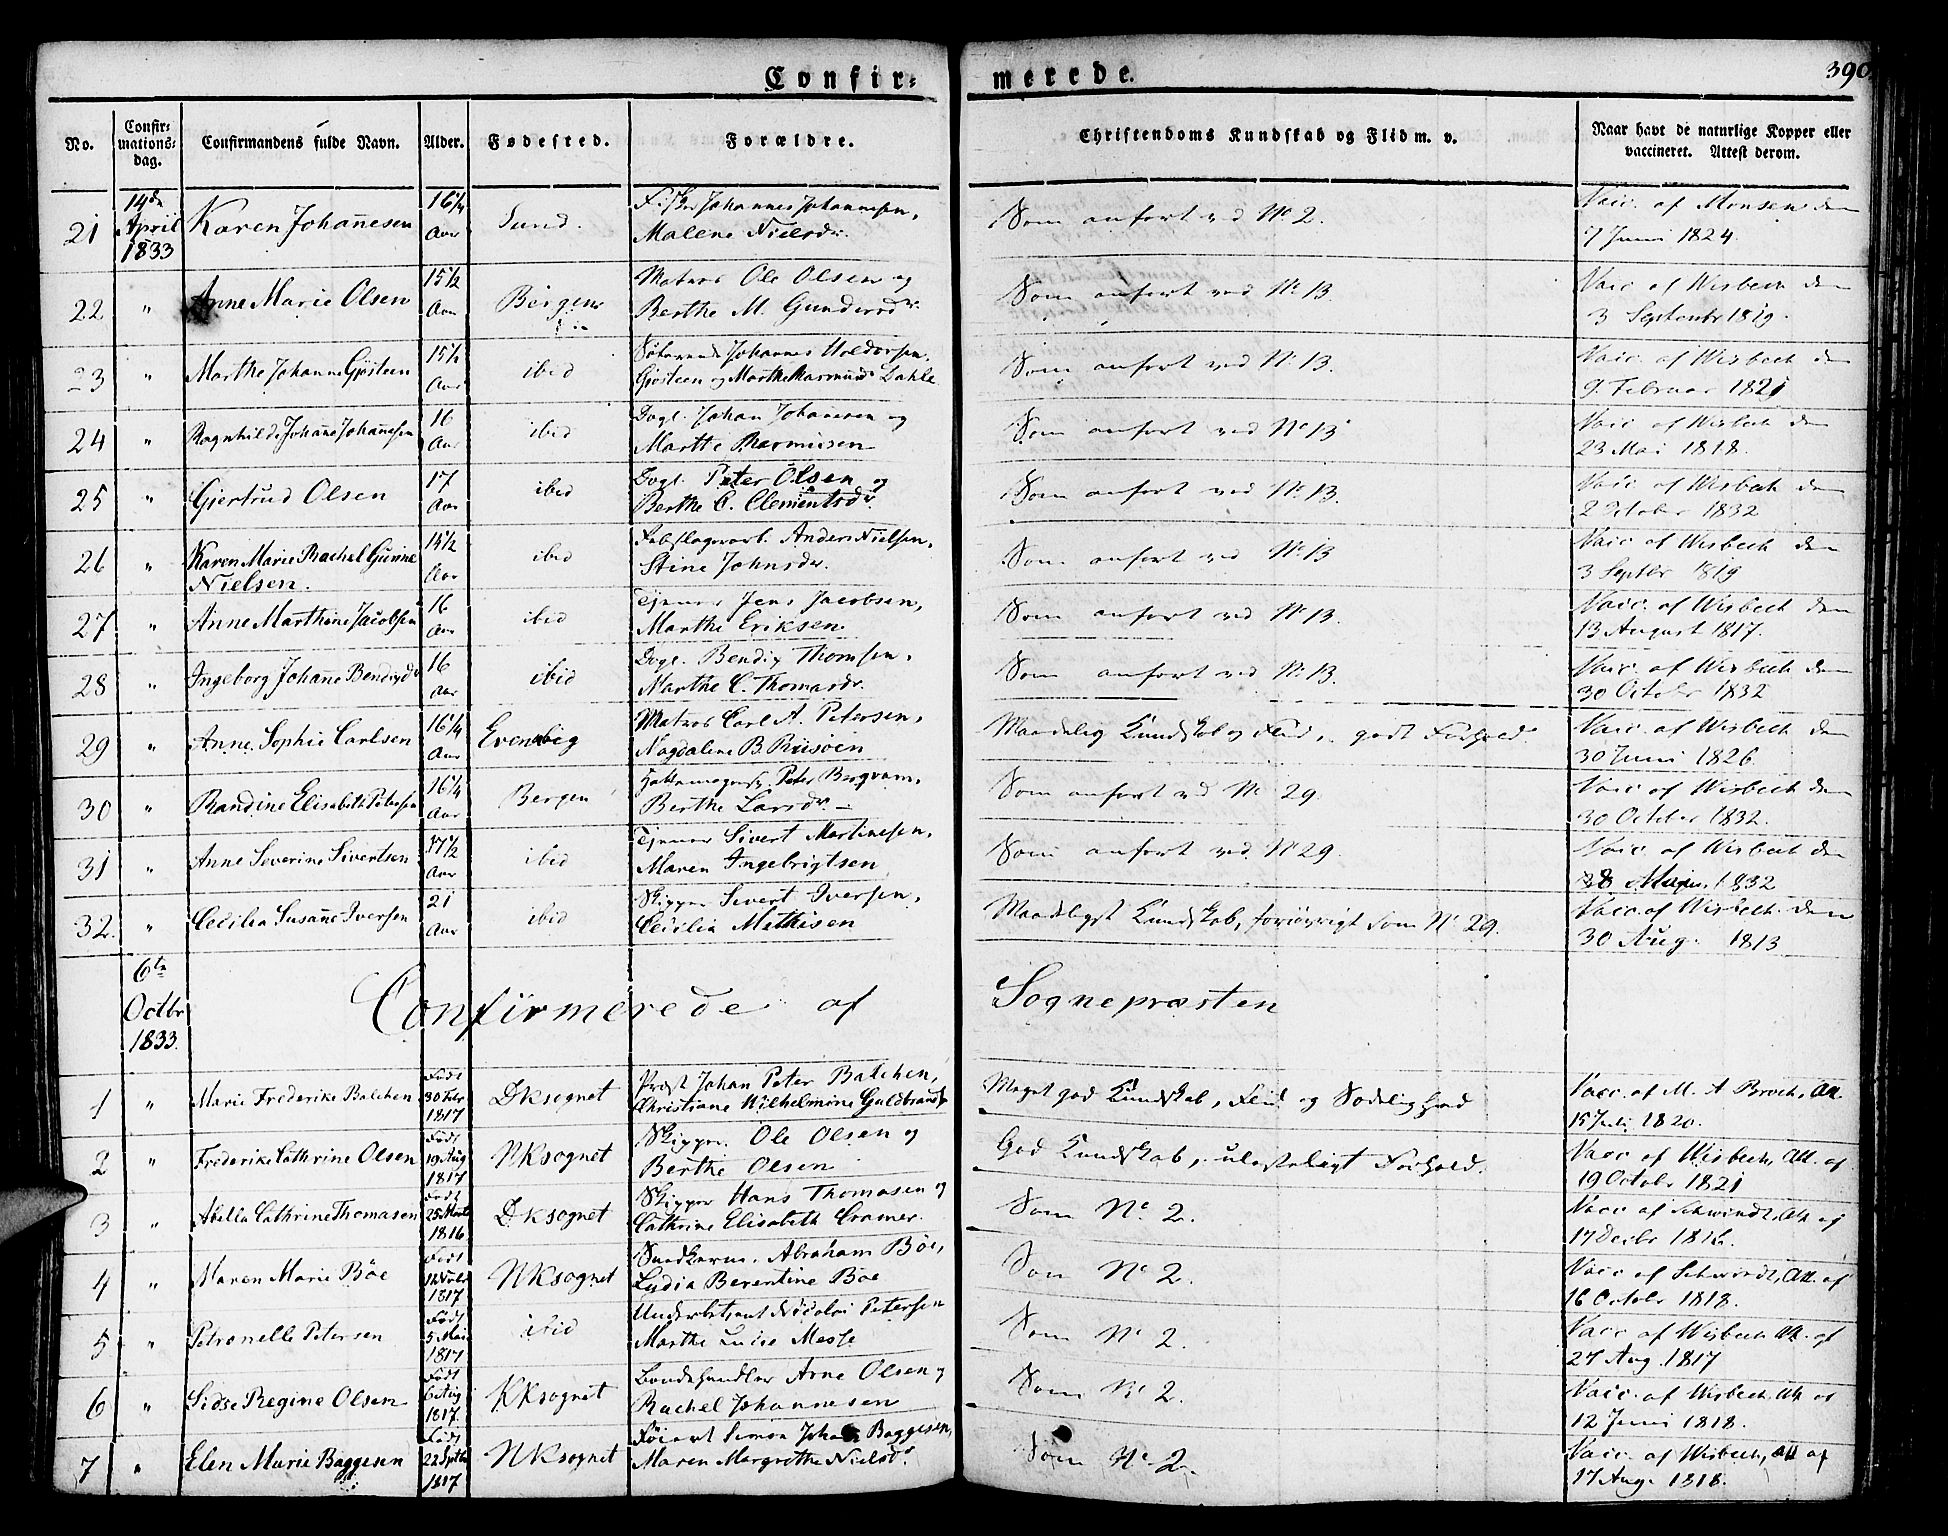 Confir= merede. 390
No. Confir=mations=dag. Confirmandens fulde Navn. Alder. Fødested. Forældre. Christendoms Kundskab og Flid m. v. Naar havt de naturlige Kopper eller vaccineret. Attest derom.
21 14de April 1833 Karen Johañesen 16¼ Aar Sund. Fisker Johannes Johannesen, Malene Nielsdr Som anført ved No 2. Vaic. af Monsen den 7 Juni 1824.
22 " Anne Marie Olsen 15½ Aar Bergen Matros Ole Olsen og Berthe M. Gundersdr. Som anført ved No 13. Vaic. af Wisbech den 3 Septembr 1819.
23 " Marthe Johanne Gjøsteen 15½ Aar ibid Johannes Holdorsen Gjøsteen og Marthe Rasmusd Dahle Som anført ved No 13. Vaic. af Wisbech den 9. Februar 1821
24 " Ragnhilde Johañe Johañesen 16 Aar ibid Dagl. Johan Johanesen og Marthe Rasmusen Som anført ved No 13 Vaic. af Wisbech den 23 Mai 1818.
25 " Gjertrud Olsen 17 Aar ibid Dagl. Peter Olsen og Berthe C. Clementsdr. Som anført ved No 13. Vaic. af Wisbech den 2 October 1832
26 " Karen Marie Rachel Gurine Nielsen. 15½ Aar ibid Anders Nielsen, Stine Johnsdr. Som anført ved No 13 Vaic. af Wisbech den 3 Septbr 1819
27 " Anne Marthine Jacobsen 16 Aar ibid Tjener Jens Jacobsen, Marthe Eriksen Som anført ved No 13. Vaic. af Wisbech den 13 August 1817.
28 " Ingeborg Johane Bendixdr 16 Aar ibid Dagl. Bendix Thomsen, Marthe C. Thomasdr. Som anført ved No 13. Vaic. af Wisbech den 30 Octobr 1832
29 " Anne Sophie Carlsen 16¼ Aar Evenvig Matros Carl A. Petersen, Magdalene B. Risøen Maadelig Kundskab og Flid, godt Forhold Vaic. af Wisbech den 30 Juni 1826
30 " Randine Elisabeth Petersen 16¼ Aar Bergen Peter Bergvam, Berthe Larsdr. Som anført ved No 29. Vaic. af Wisbech den 30 October 1832.
31 " Anne Severine Sivertsen 17½ Aar ibid Tjener Sivert Martinesen, Maren Ingebrigtsen Som anført ved No 29. Vaic. af Wisbech den 28 1832
32. " Cecilia Susañe Iversen 21 Aar ibid Skipper Sivert Iversen, Cecilia Mathisen Maadeligst Kundskab, forøvrigt som No 29. Vaic. af Wisbech den 30 Aug. 1813
6te Octbr 1833. Confirmerede af Sognepræsten
1 " Marie Frederike Balchen Født 30 Febr 1817 Dksognet Præst Johan Peter Balchen, Christiane Wilhelmine Guldbrands Meget god Kundskab, Flid og Sædelighed Vacc. af M. A Broch, Att. 15 Juli 1820.
2 " Frederike Cathrine Olsen Født 19 Aug 1817 Nksognet Skipper. Ole Olsen og Berthe Olsen God Kundskab, ulasteligt Forhold. Vacc af Wisbech, Att. af 19 Octobr 1821
3 " Abella Cathrine Thomasen Født 25 Marts 1816 Dksognet Skipper Hans Thomasen og Cathrine Elisabeth Cramer. Som No. 2. Vacc af Schwindt, Att af 17 Decbr 1816.
4 " Maren Marie Böe Født 12 1817 Nksognet Abraham Böe, Lydia Berentine Böe Som No. 2. Vacc af Schwindt, Att. af 16 Octobr 1818.
5 " Petronelle Petersen Født 5 Mai 1817 ibid Underbetjent Nicolai Petersen Marthe Lucie Som No. 2. Vacc af Wisbech Att. af 27 Aug. 1817
6 " Sidse Regine Olsen Født 6 Aug 1817. Kksognet Bondehandler Arne Olsen og Rachel Johannesen Som No. 2. Vacc. af Wisbech, Att af 12 Juni 1818.
7 " Elen Marie Baggesen Født 22 Septbr 1817 Nksognet Simon Johan Baggesen, Maren Margrethe Nielsdr Som No. 2. Vacc. af Wisbech, Att af 17 Aug. 1818.